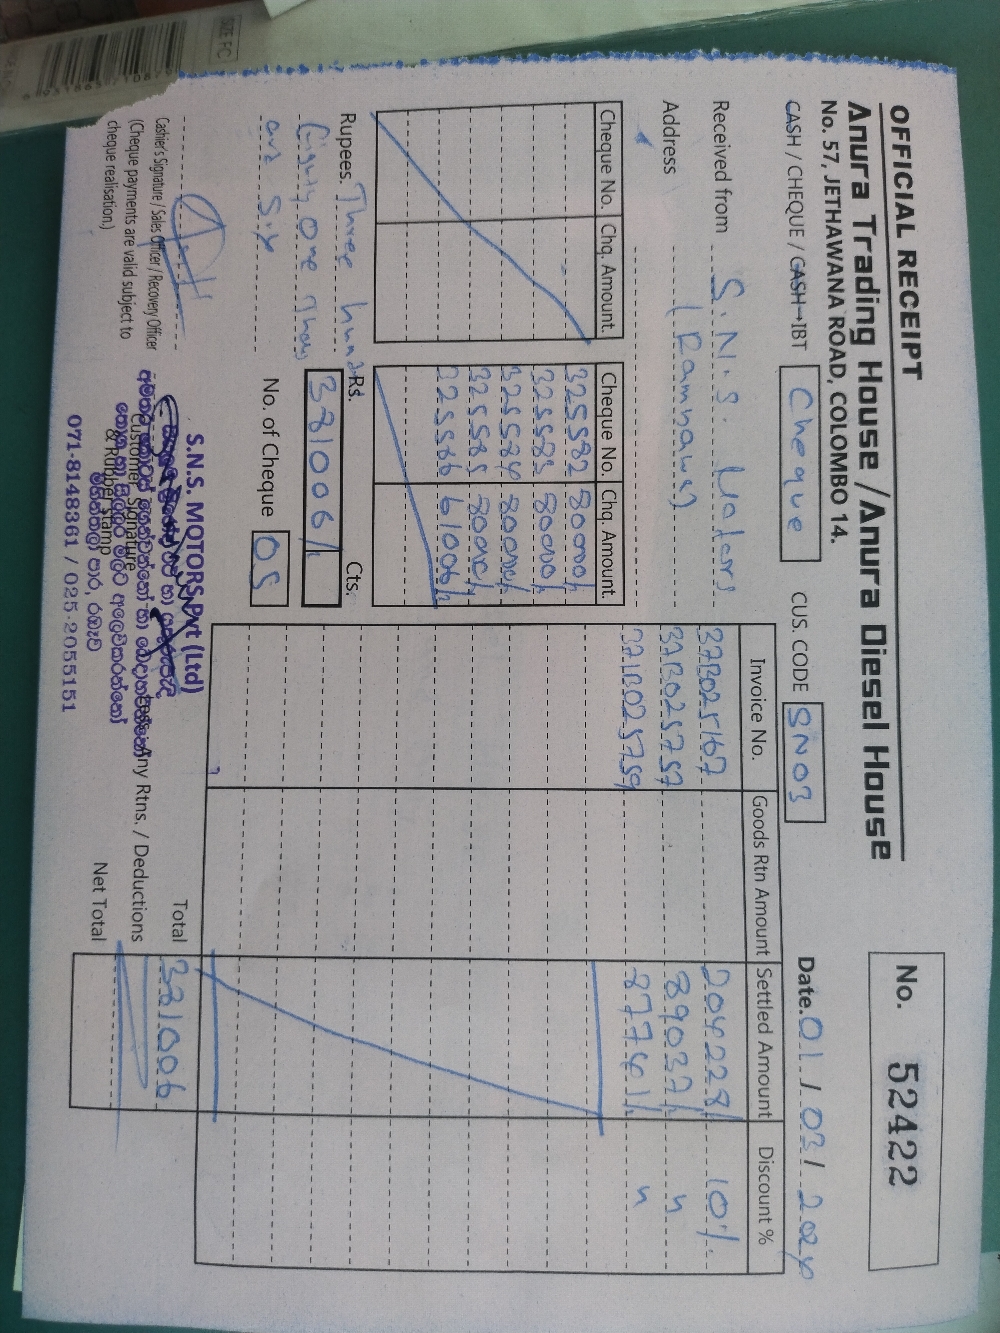 OFFICIAL RECEIPT
No. 52422
Anura Trading House / Anura Diesel House
No. 57, JETHAWANA ROAD, COLOMBO 14.
CASH / CHEQUE / CASH→IBT Cheque CUS. CODE SN03 Date. 01 / 03 / 2024
Received from S.N.S. Motors
Address (Rambawa)
Cheque No. Chq. Amount. Cheque No. Chq. Amount.
325582 80000/-
325583 80000/-
325584 80000/-
325585 80000/-
325586 61006/-
Invoice No. Goods Rtn Amount Settled Amount Discount %
37B025167 204228/- 10%
37B025757 89037/- "
37B025759 87741/- "
Rupees. Three hund
Eighty one Thou
and six
Rs. 381006/- Cts.
No. of Cheque 05
Total 381006
Less: Any Rtns. / Deductions
Net Total
Cashier's Signature / Sales Officer / Recovery Officer
(Cheque payments are valid subject to
cheque realisation)
Customer Signature
& Rubber Stamp
S.N.S. MOTORS Pvt (Ltd)
071-8148361 / 025-2055151
SIZE FC